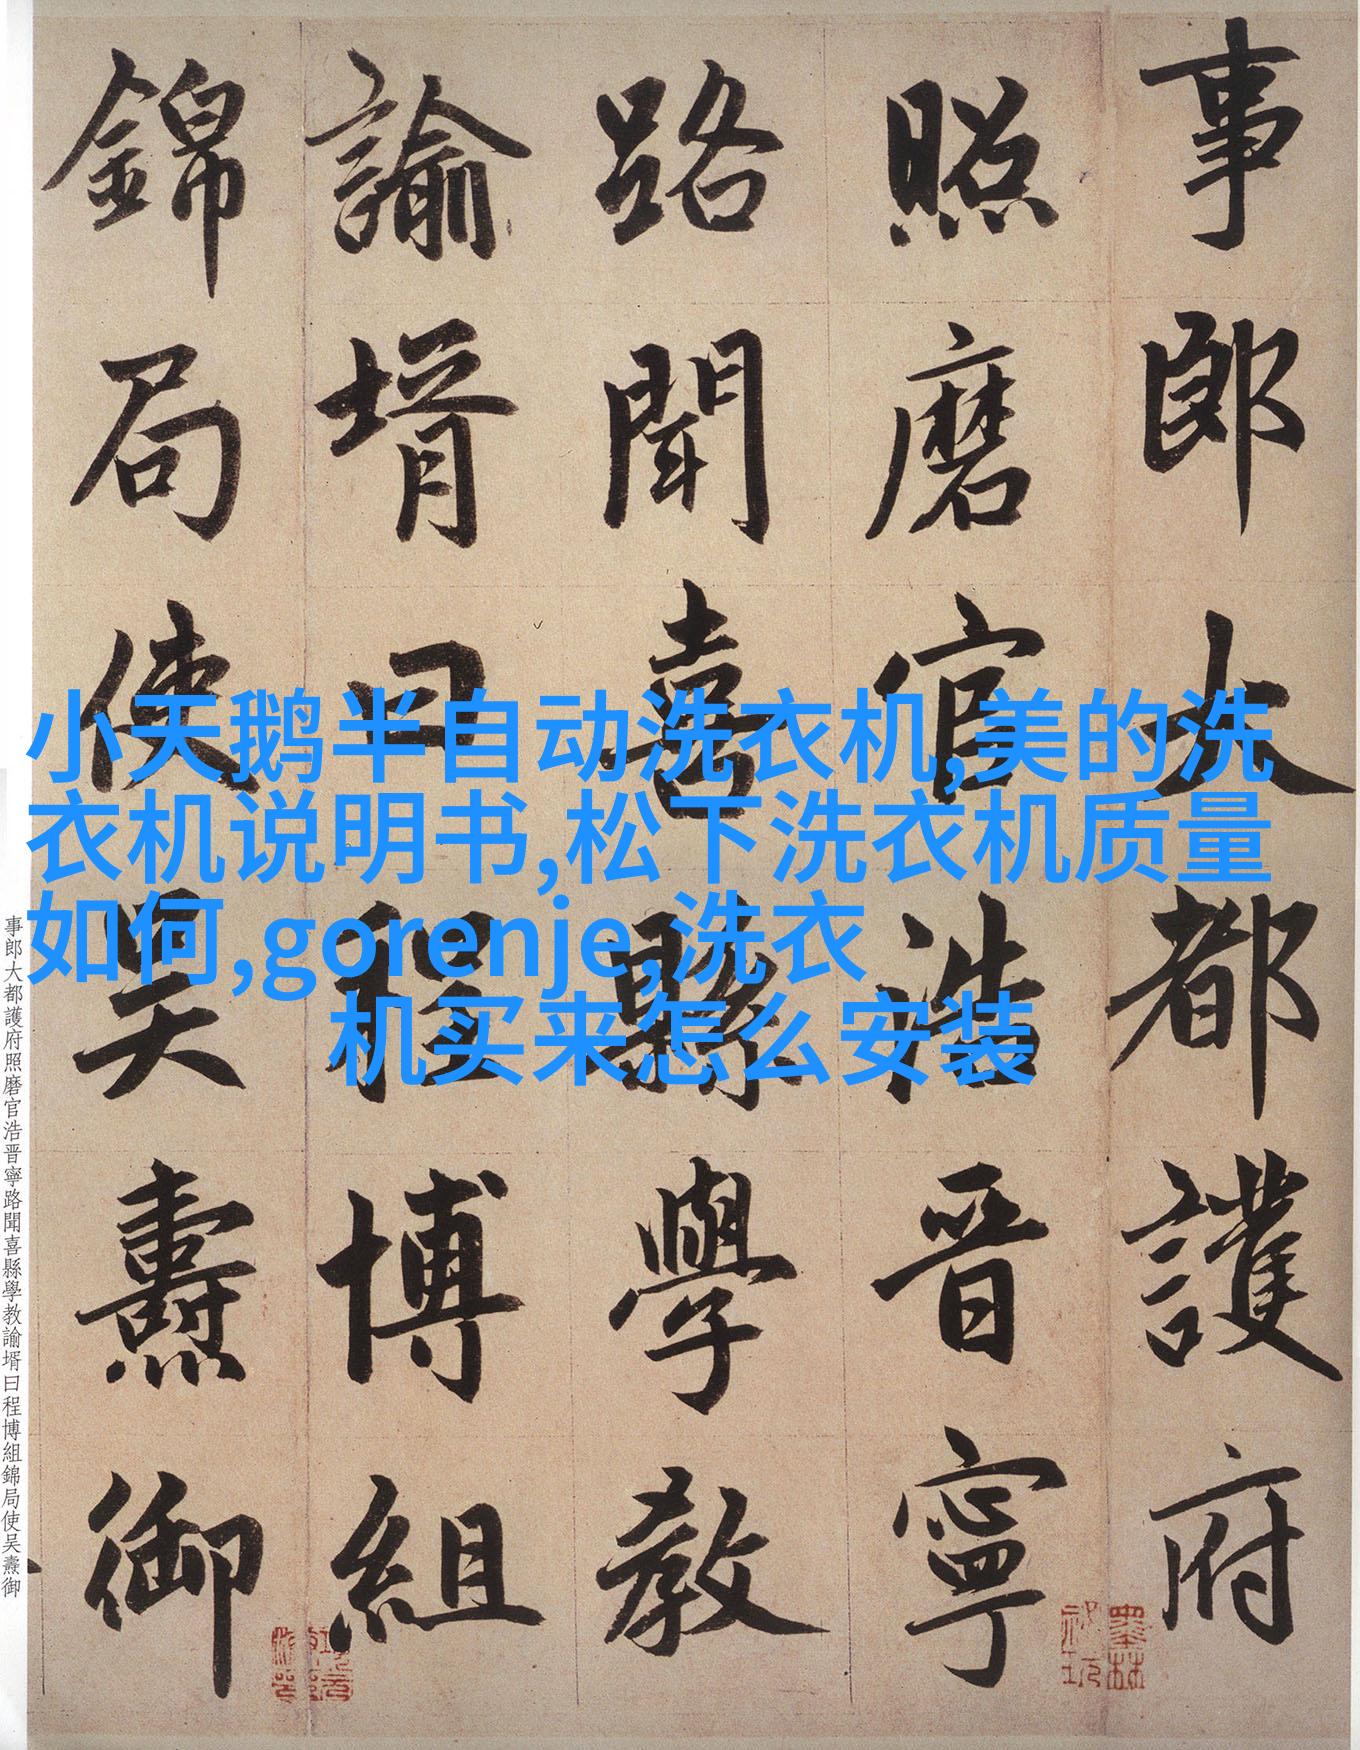 事郎大都護府
照磨官浩晋寧
路聞喜縣學教
諭壻曰程博組
錦局使吴燾御
小天鹅半自动洗衣机,美的洗
衣机说明书,松下洗衣机质量
如何,gorenje,洗衣
机买来怎么安装
事郎大都護府照磨官浩晋寧路聞喜縣學教諭壻曰程博組錦局使吴燾御